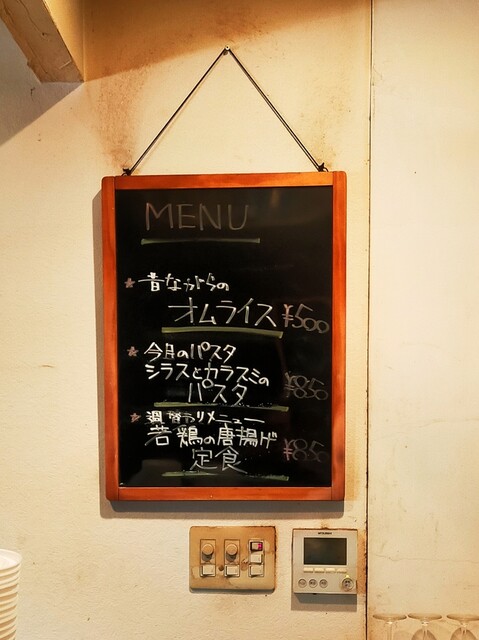 MENU
★昔ながらの
オムライス ¥500
★今月のパスタ
シラスとカラスミの
パスタ ¥850
★週替わりメニュー
若鶏の唐揚げ
定食 ¥850